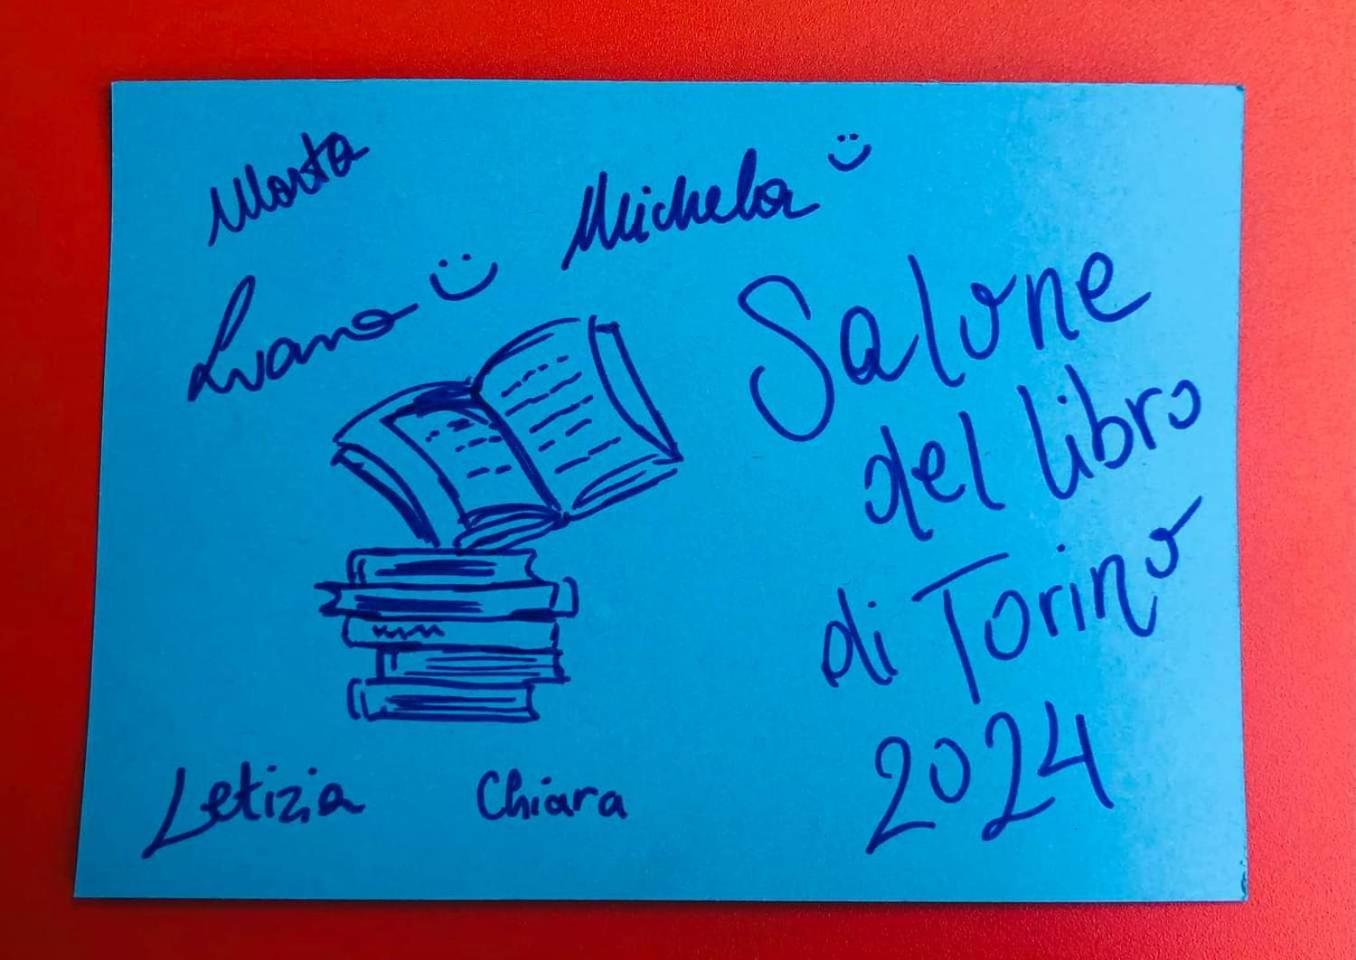 Marta
Michela
Ivano
Salone
del libro
di Torino
2024
Letizia
Chiara